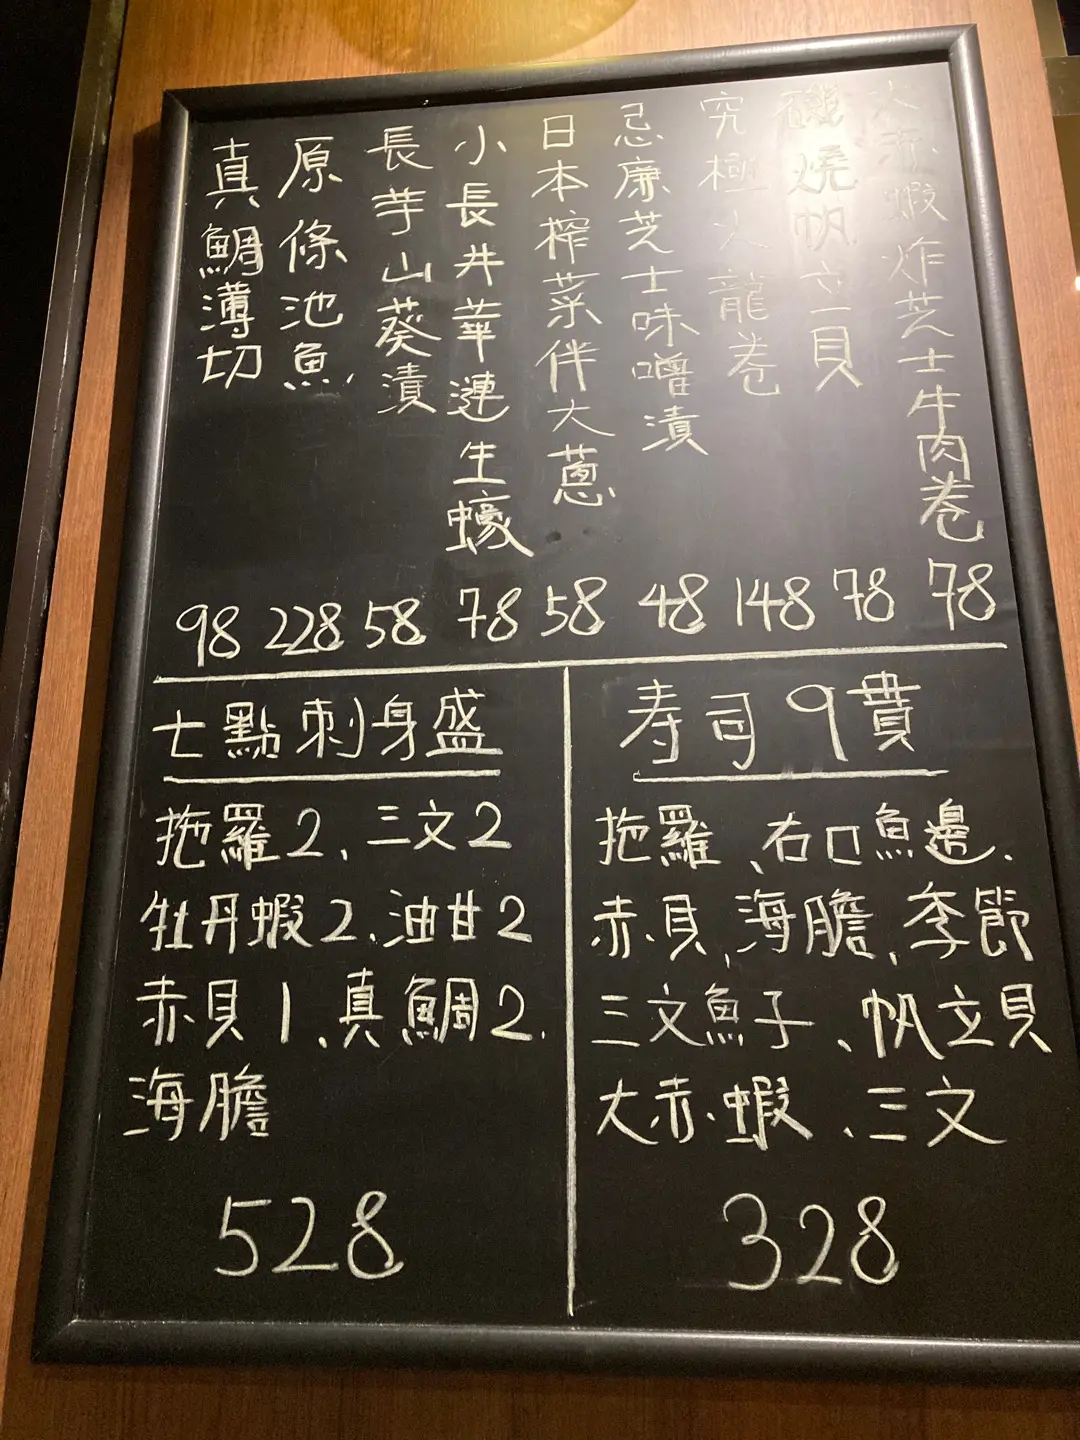 大赤蝦炸芝士牛肉卷
磯燒帆立貝
究極火龍卷
忌廉芝士味噌漬
日本榨菜伴大蔥
小長井華蓮生蠔
長芋山葵漬
原條池魚
真鯛薄切
98 228 58 78 58 48 148 78 78
七點刺身盛
拖羅2、三文2
牡丹蝦2、油甘2
赤貝1、真鯛2、
海膽
528
寿司9貫
拖羅、右口魚邊、
赤貝、海膽、季節
三文魚子、帆立貝
大赤蝦、三文
328